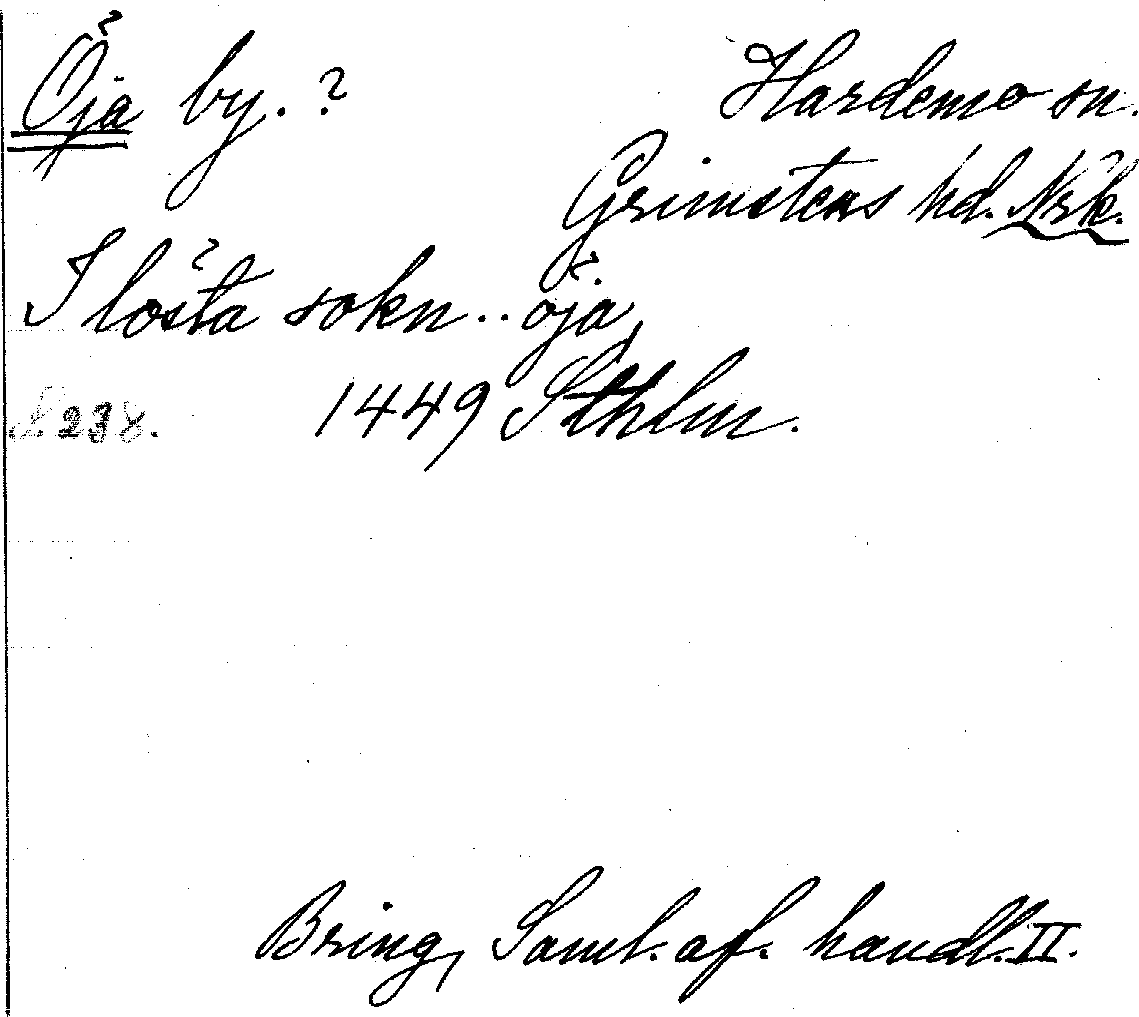 Öja by. ?
Hardemo sn.
Grimstens hd. Nrk.
I lösta sokn .. öja,
1449 Sthlm.
Bring, Saml. af. handl. II.